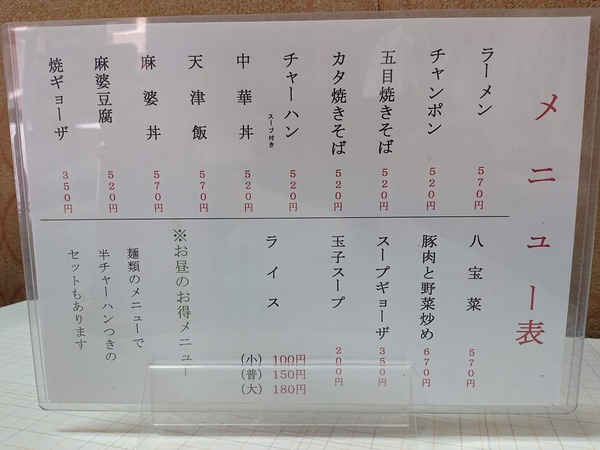 メニュー表
ラーメン 570円
チャンポン 520円
五目焼きそば 520円
カタ焼きそば 520円
チャーハン スープ付き 520円
中華丼 520円
天津飯 570円
麻婆丼 570円
麻婆豆腐 520円
焼ギョーザ 350円
八宝菜 570円
豚肉と野菜炒め 670円
スープギョーザ 350円
玉子スープ 200円
ライス
(小) 100円
(普) 150円
(大) 180円
※お昼のお得メニュー
麺類のメニューで
半チャーハンつきの
セットもあります